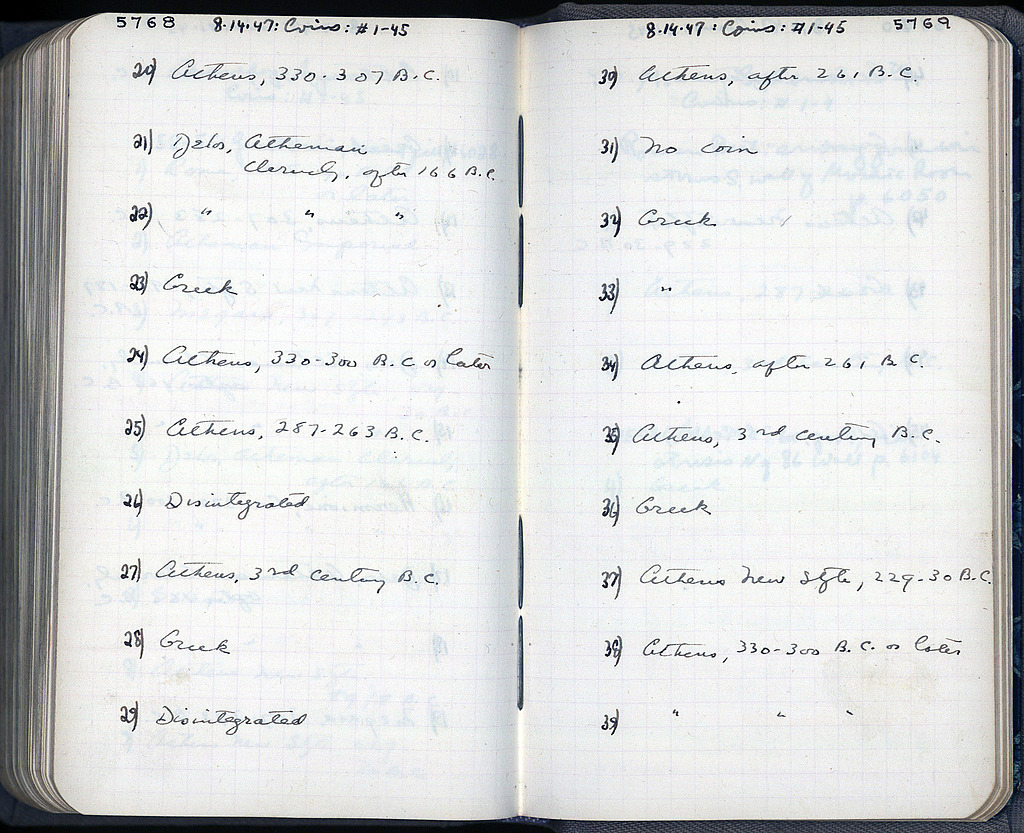 5768
8·14·47: Coins: #1-45
20) Athens, 330-307 B.C.
21) Delos, Athenian
Cleruchy, after 166 B.C.
22) " " "
23) Greek
24) Athens, 330-300 B.C. or later
25) Athens, 287-263 B.C.
26) Disintegrated
27) Athens, 3rd century B.C.
28) Greek
29) Disintegrated
8·14·47: Coins: #1-45
5769
30) Athens, after 261 B.C.
31) No coin
32) Greek
33) "
34) Athens, after 261 B.C.
35) Athens, 3rd century B.C.
36) Greek
37) Athens New Style, 229-30 B.C.
38) Athens, 330-300 B.C. or later
39) " " "